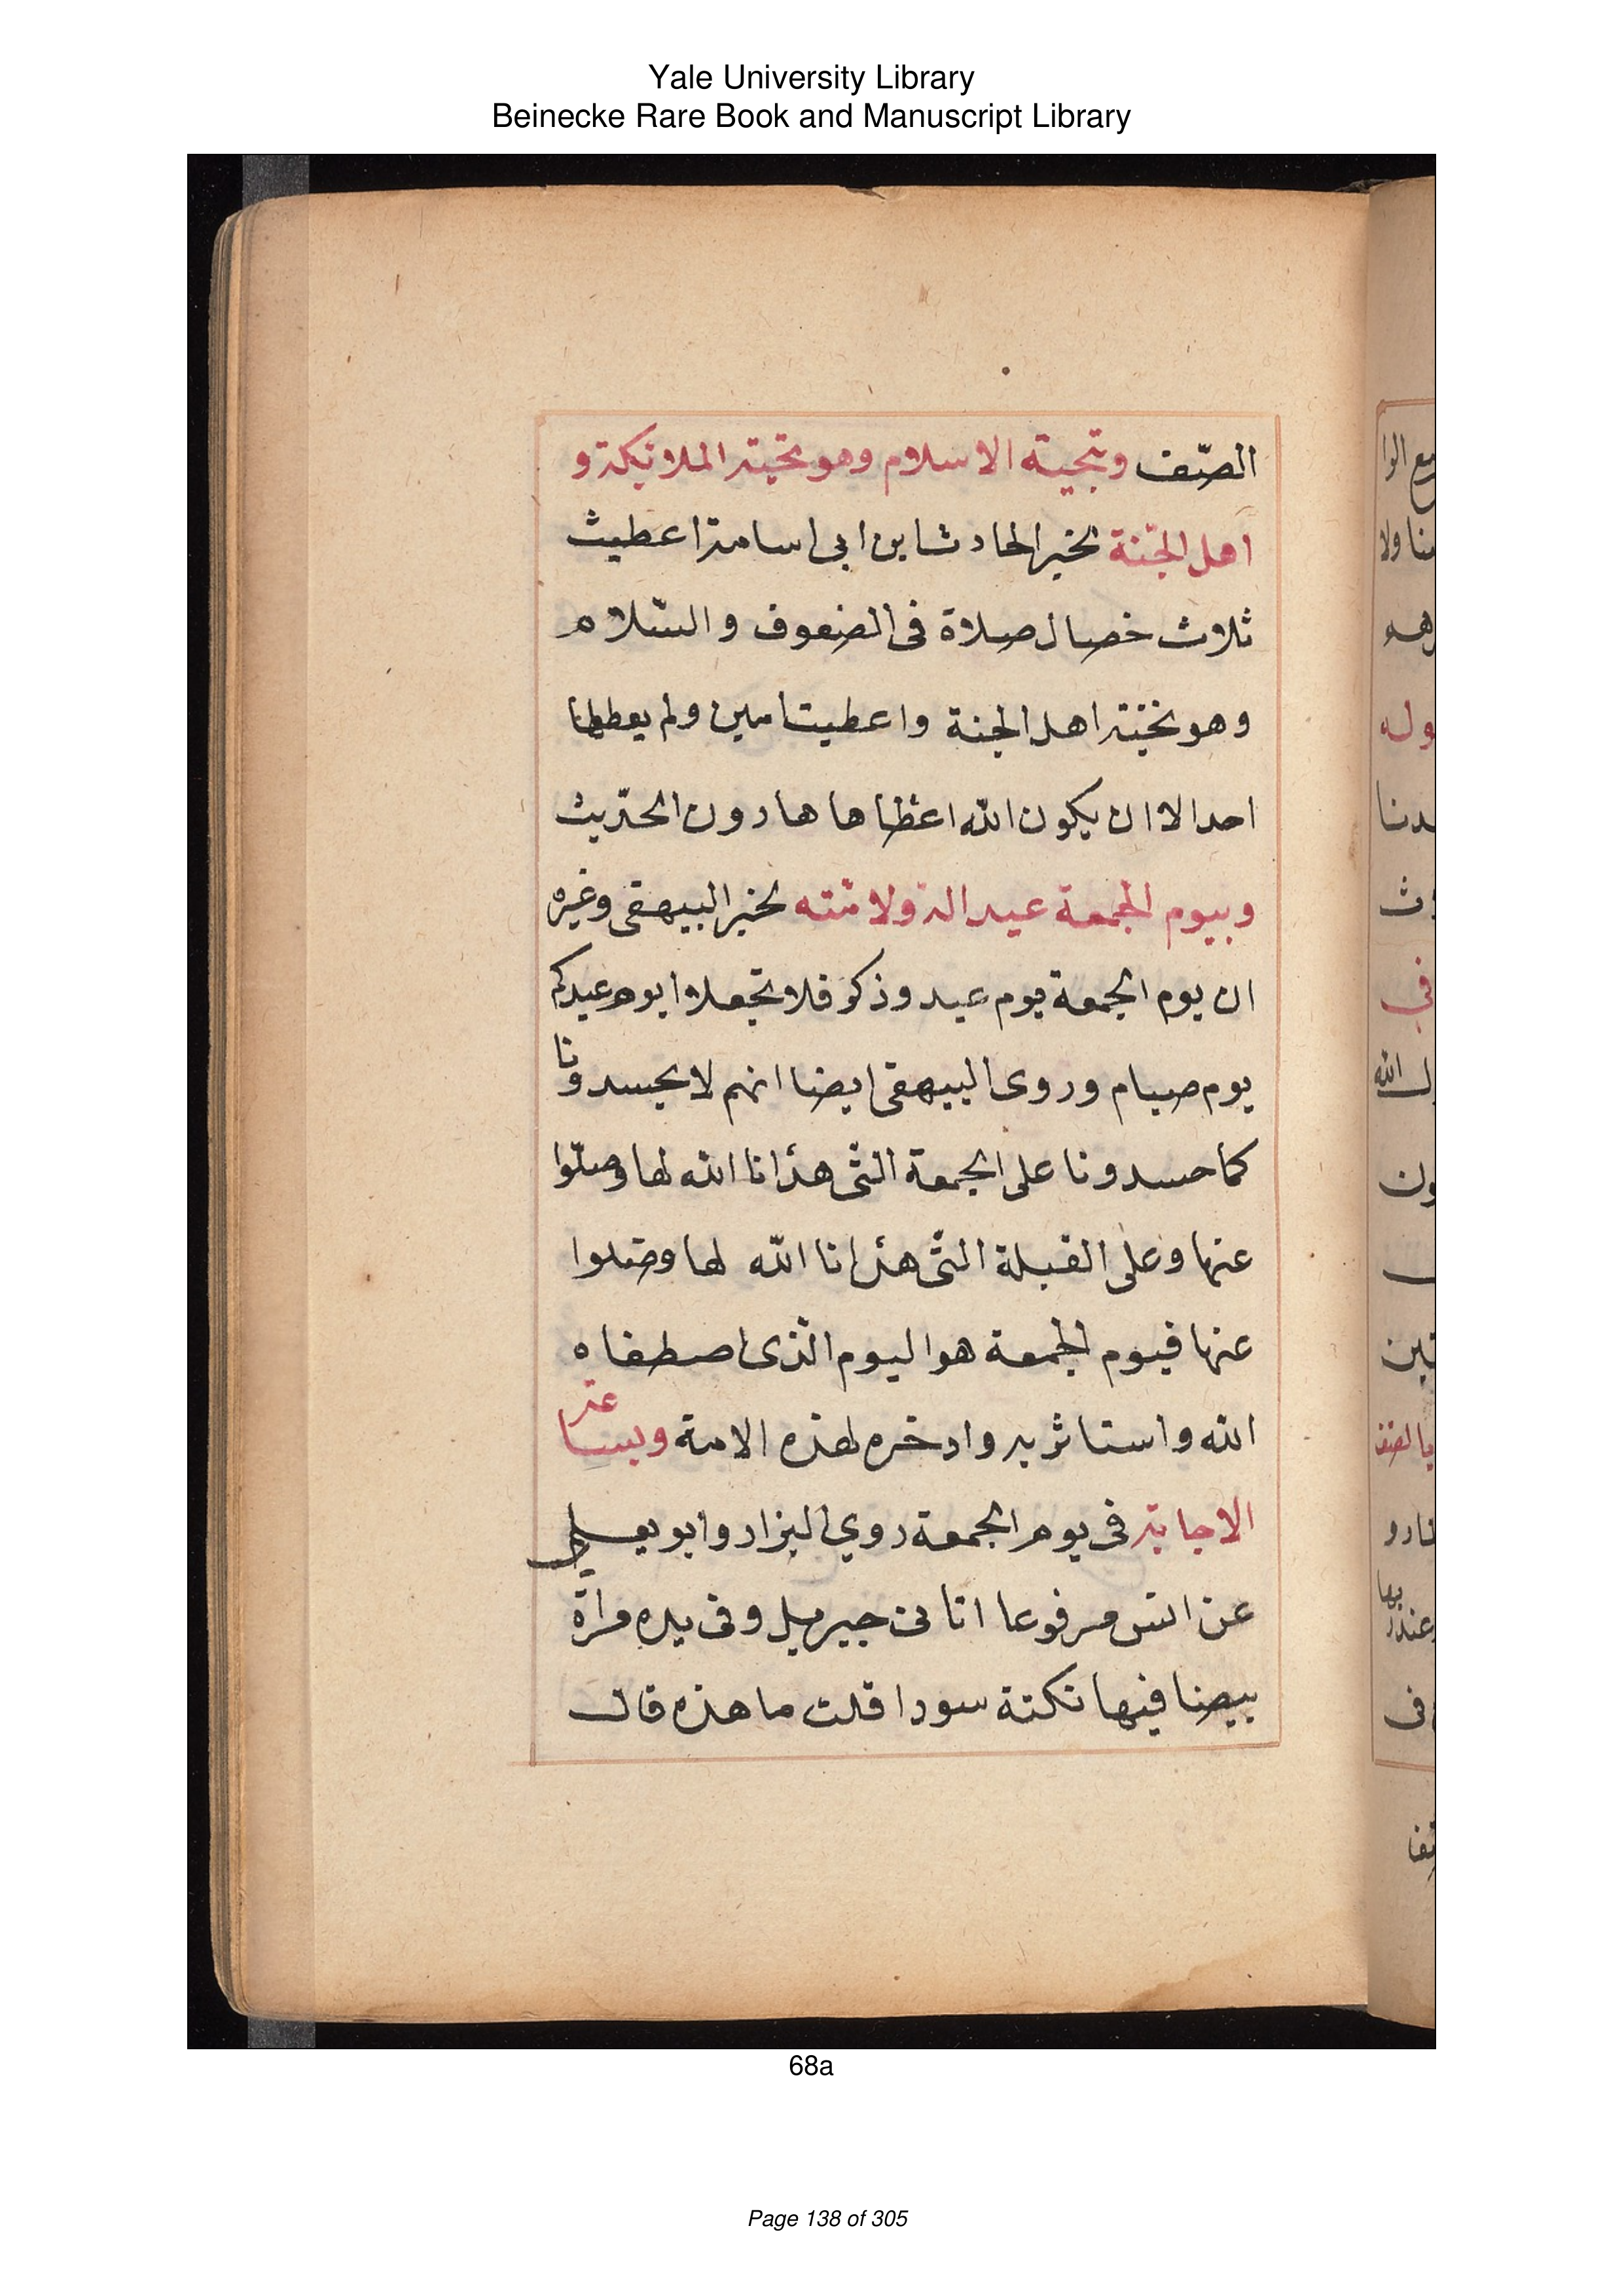 Yale University Library
Beinecke Rare Book and Manuscript Library
الصّف وبتحية الاسلام وهو تحية الملائكة و
اهل الجنّة لخبر الحادث ابن ابى اسامة اعطيت
ثلاث خصال صلاة فى الصفوف والسّلام
وهو تحية اهل الجنة واعطيت امين ولم يعطها
احد الا ان يكون الله اعطاها ها دون الحدّيث
وبيوم الجمعة عيد الہ ولامّته لخبر البيهقى وغيره
ان يوم الجمعة يوم عيد وذكر فلا تجعلوا يوم عيدكم
يوم صيام وروى البيهقى ايضا انهم لا يحسدونا
كما حسدونا على الجمعة التّى هدانا الله لها وضلّوا
عنها وعلى القبلة التّى هدانا اللّه لها وضلوا
عنها فيوم الجمعة هو اليوم الّذى اصطفاه
الله واستاثر به وادخره لهذه الامة وبساعة
الاجابة فى يوم الجمعة روي البزار وابو يعلى
عن انس مرفوعا اتانى جبريل وفى يده مراة
بيضا فيها نكتة سودا قلت ما هذه قال
68a
Page 138 of 305